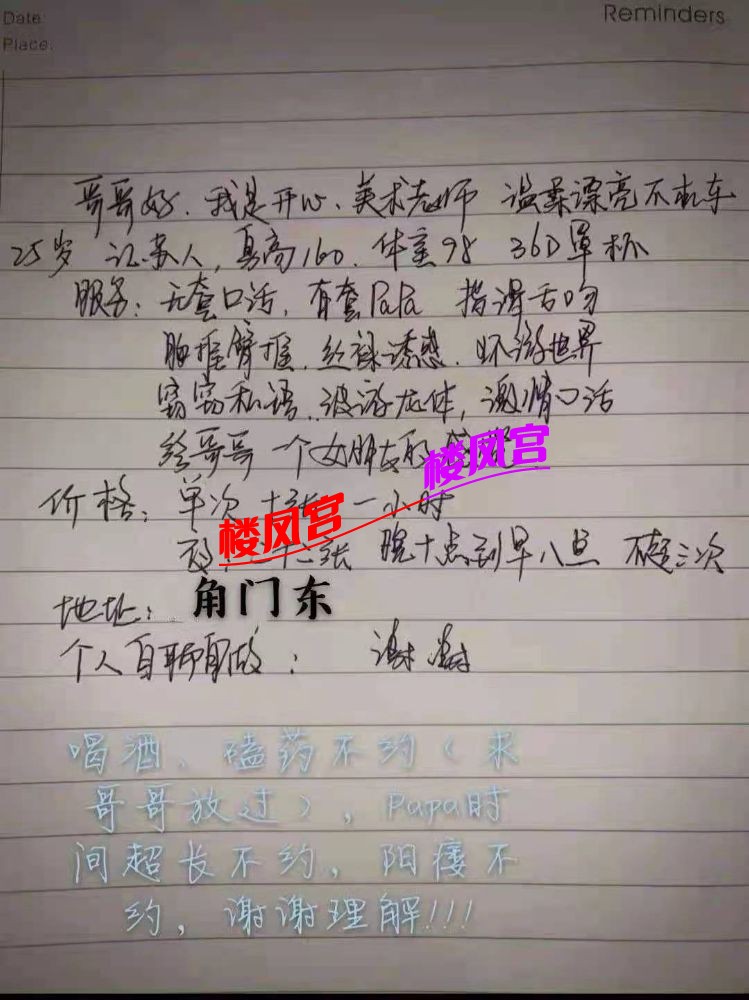 Date:
Place:
Reminders
哥哥好、我是开心、美术老师 温柔漂亮不机车
25岁 江苏人,真高160、体重98 36D罩杯
服务:无套口活,有套PaPa 指滑舌吻
胸推臀推、丝袜诱惑、环游世界
窃窃私语、波游龙体,激情口活
给哥哥一个女朋友的
楼凤宫
价格:单次十张 一小时
楼凤宫
晚十点到早八点 不超三次
地址:角门东
个人自聊自做: 谢谢
喝酒、嗑药不约(求
哥哥放过),Papa时
间超长不约,阳痿不
约,谢谢理解!!!